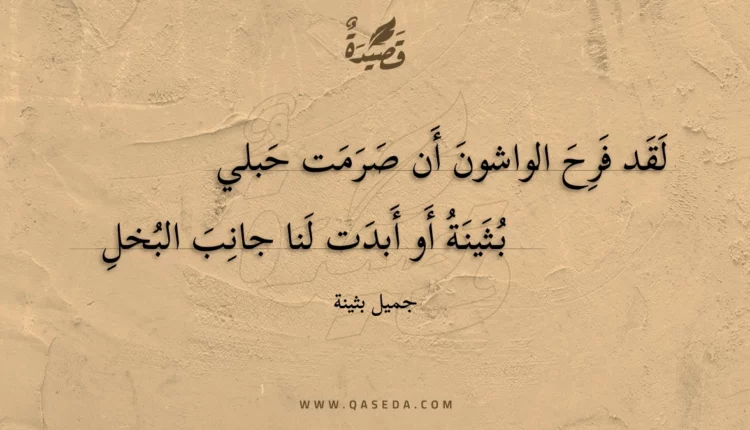 قَصِيدَةٌ
لَقَد فَرِحَ الواشونَ أَن صَرَمَت حَبلي
بُثَينَةُ أَو أَبدَت لَنا جانِبَ البُخلِ
جميل بثينة
WWW.QASEDA.COM